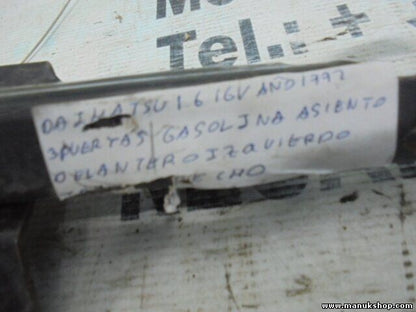 Mo
Tel.: +
DAIHATSU 1.6 16V AÑO 1992
3 PUERTAS GASOLINA ASIENTO
DELANTERO IZQUIERDO
ECHO
www.manukshop.com